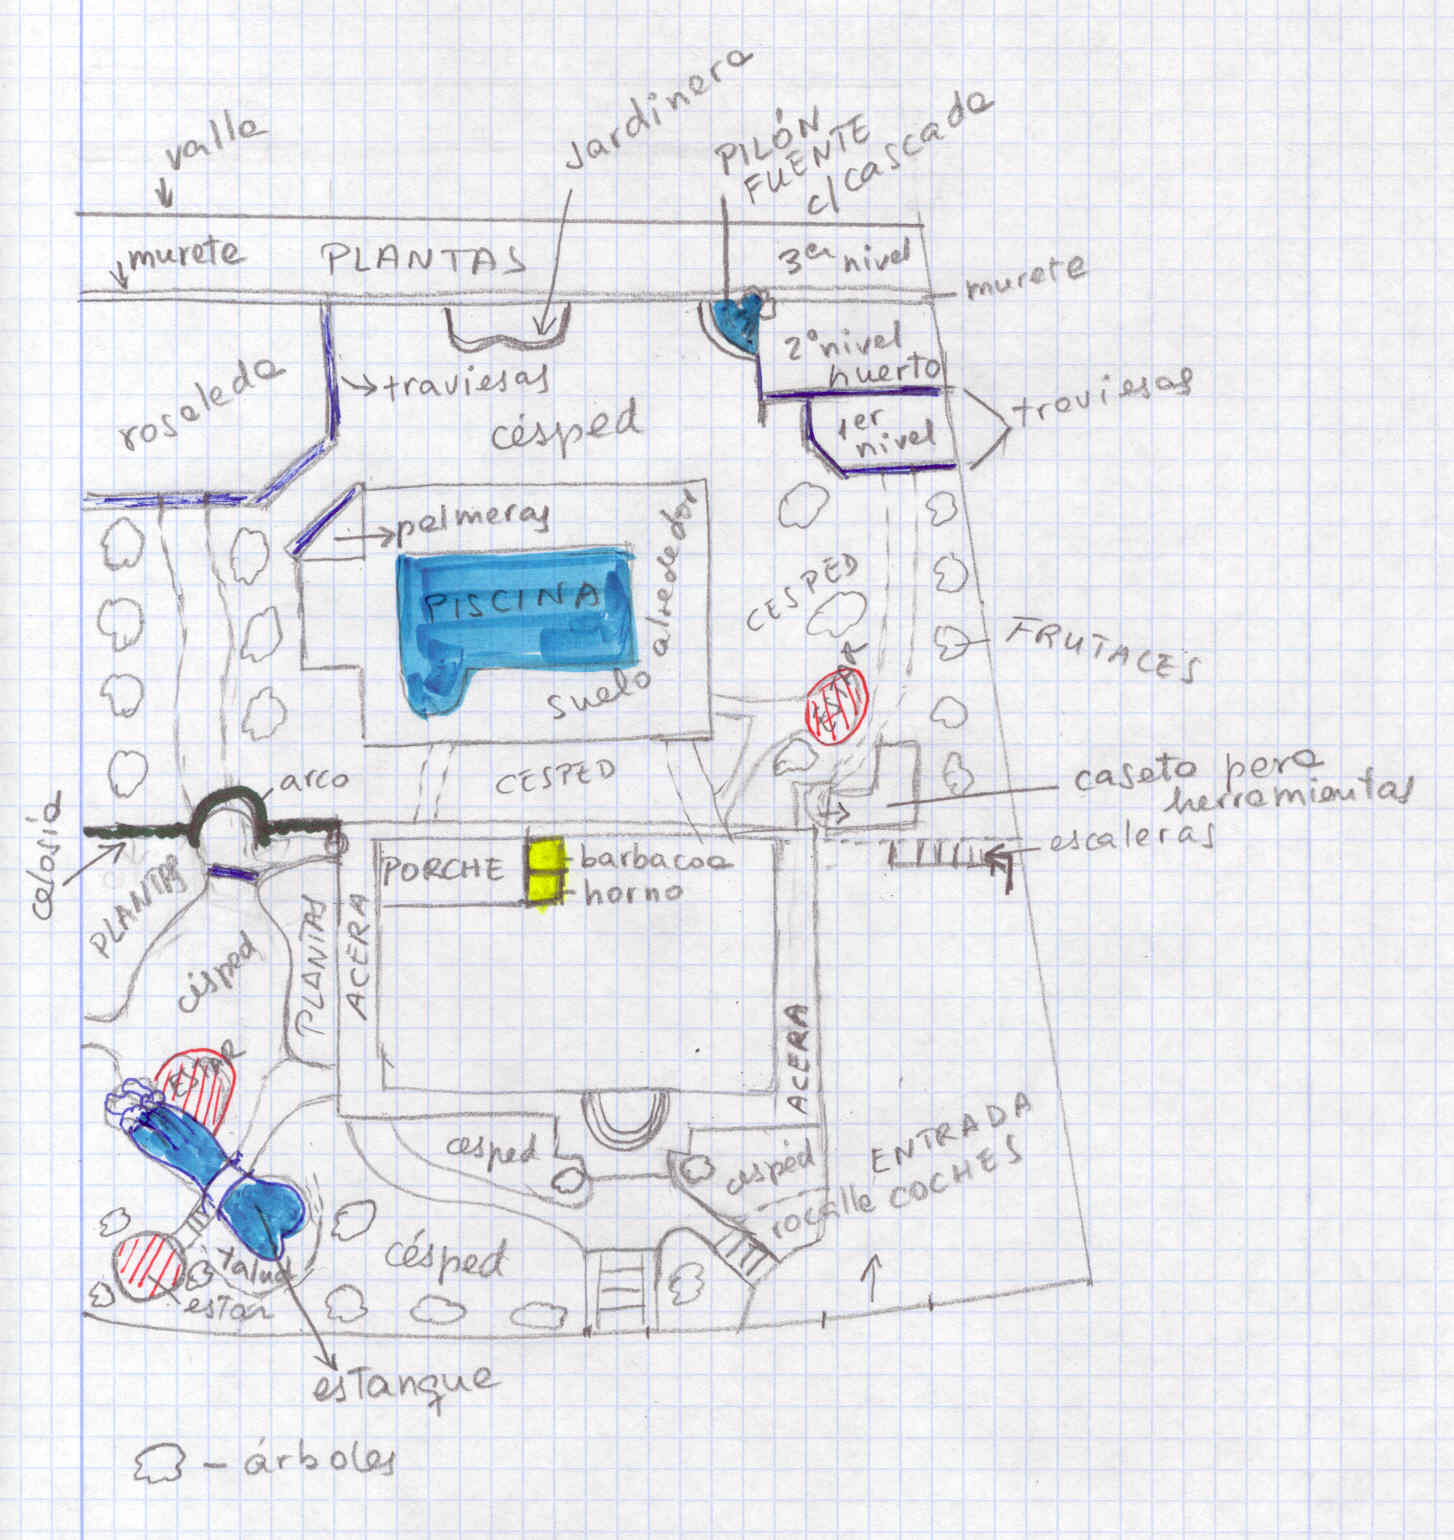 valla
jardinera
PILÓN
FUENTE
c/ cascada
murete
PLANTAS
3er nivel
murete
2º nivel
huerto
rosaleda
traviesas
césped
1er
nivel
traviesas
palmeras
PISCINA
suelo alrededor
CESPED
ESTAR
FRUTALES
arco
CESPED
caseta para
herramientas
escaleras
celosía
PLANTAS
PORCHE
barbacoa
horno
césped
PLANTAS
ACERA
ACERA
ESTAR
césped
césped
ENTRADA
COCHES
rocalla
césped
talud
estar
estanque
- árboles